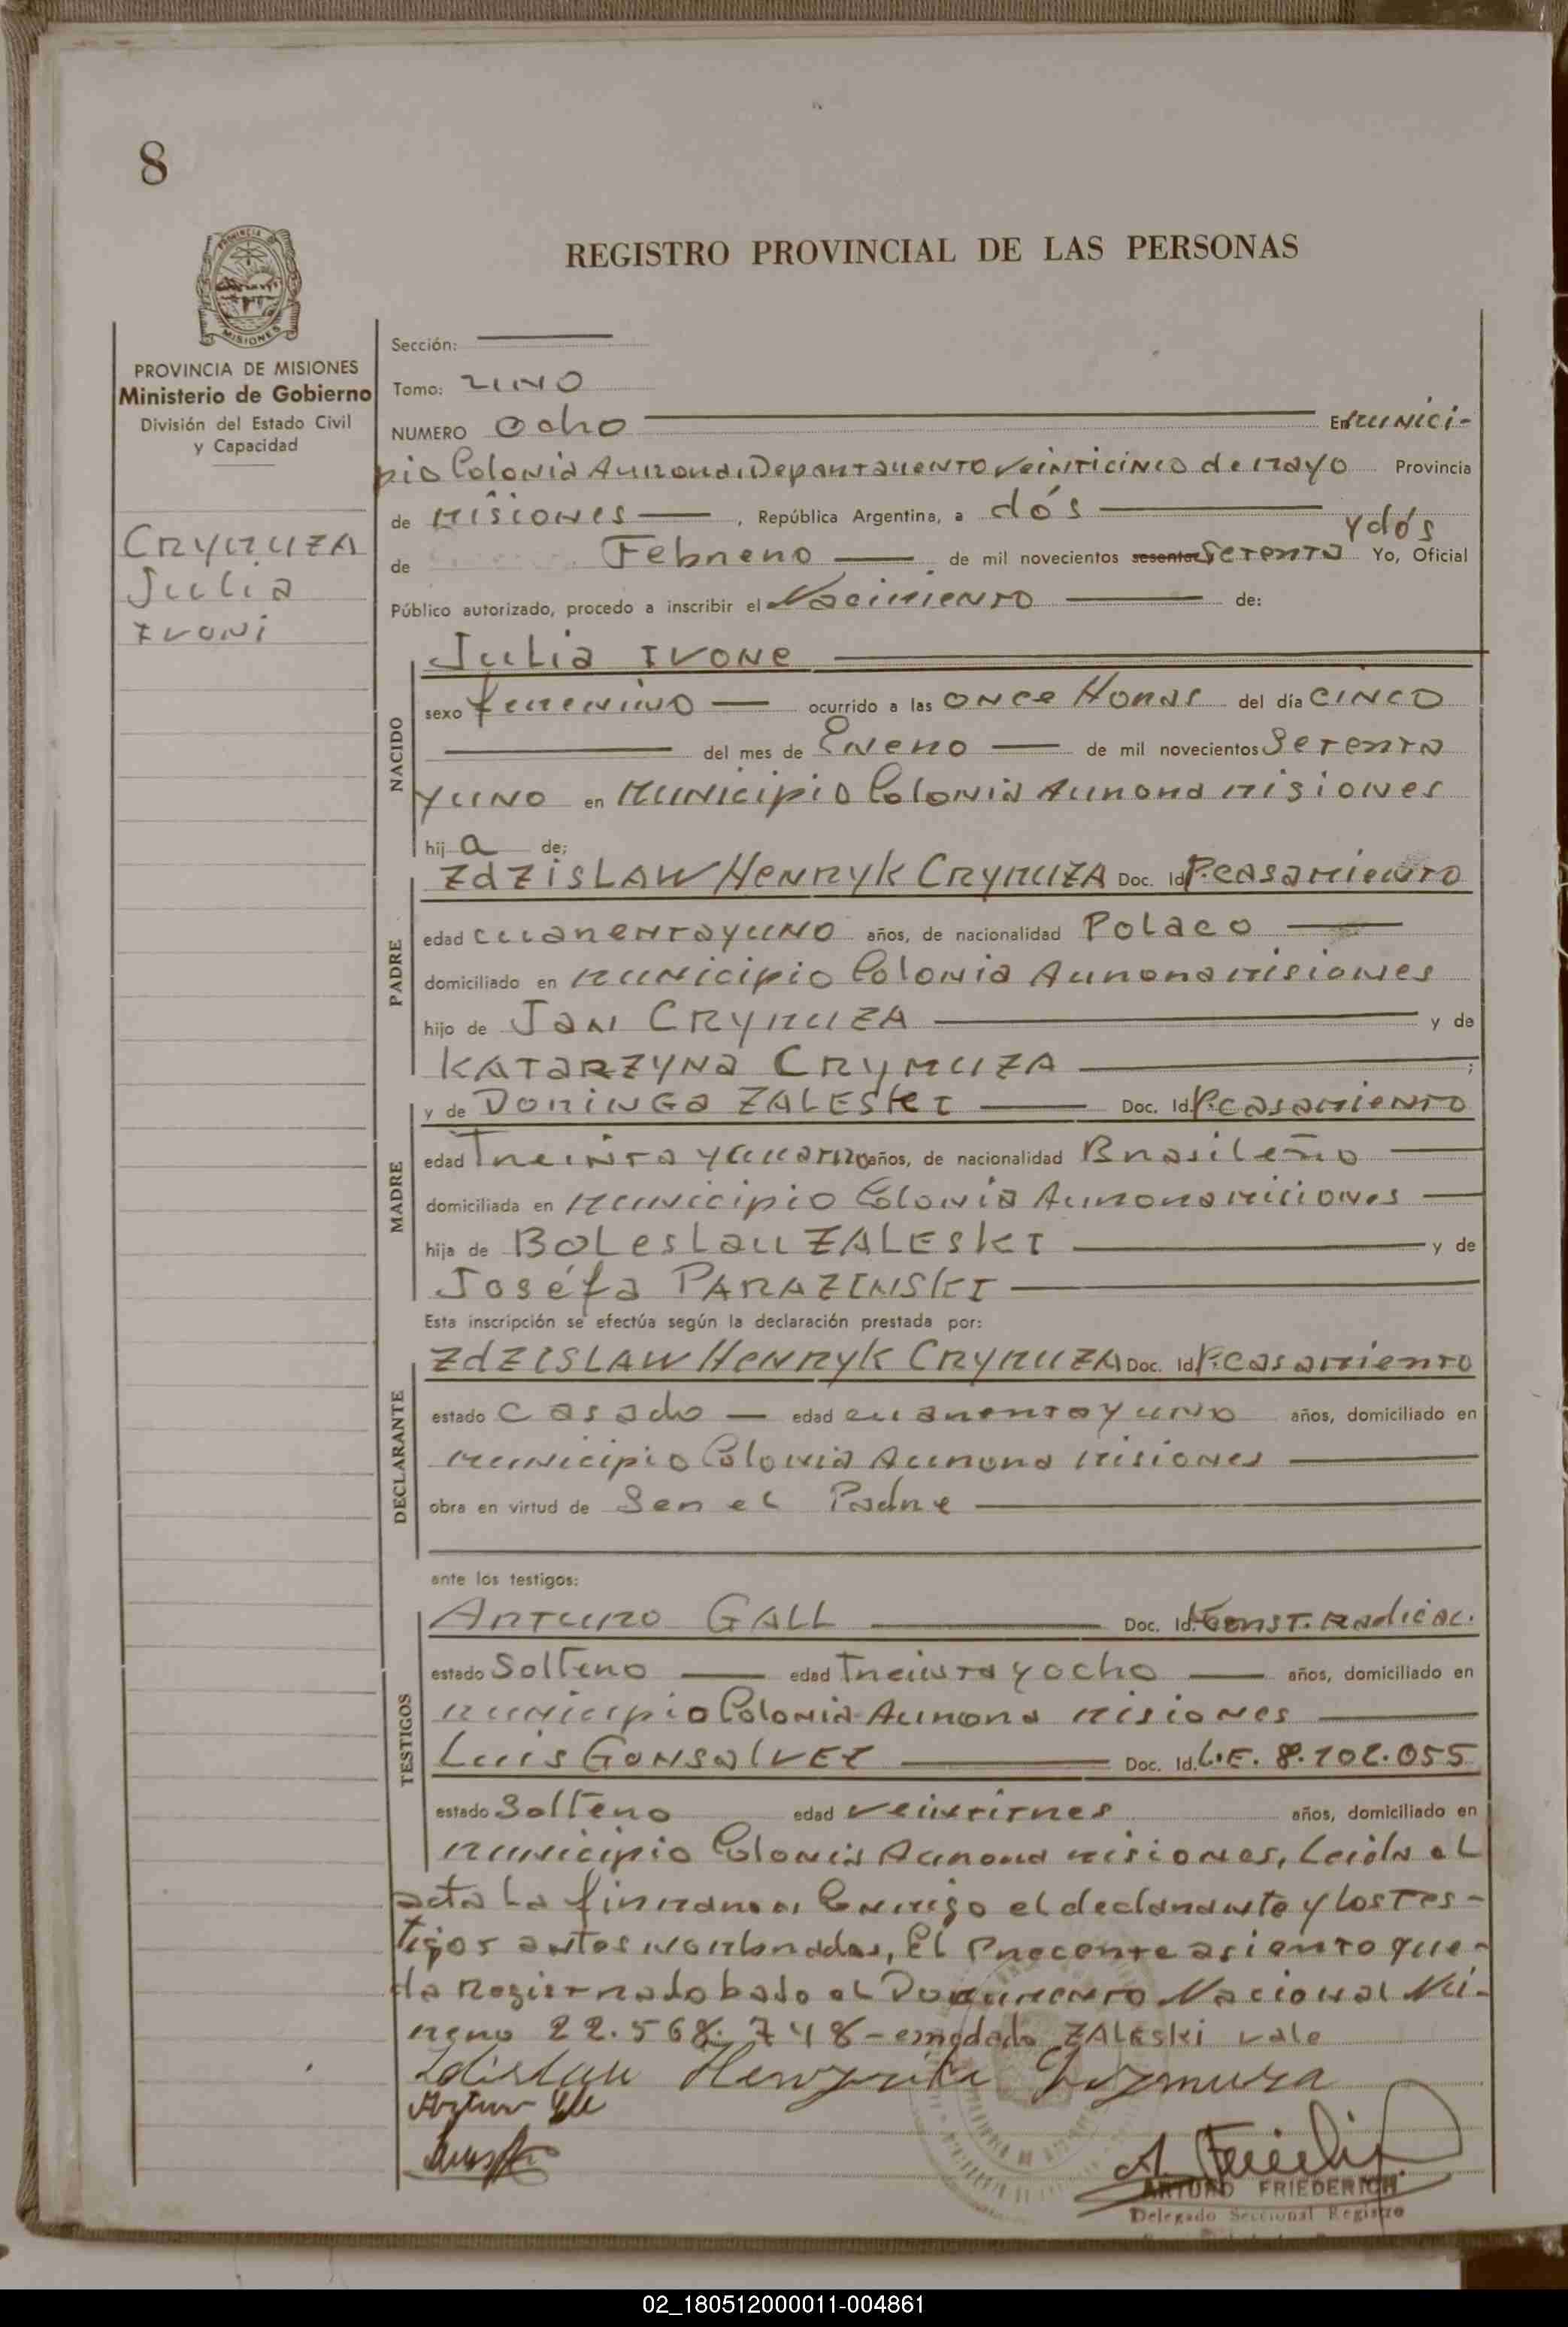 8
REGISTRO PROVINCIAL DE LAS PERSONAS
PROVINCIA
MISIONES
PROVINCIA DE MISIONES
Ministerio de Gobierno
División del Estado Civil
y Capacidad
CRYMUZA
Julia
IVONi
Sección:
Tomo: UNO
NUMERO Ocho En Munici-
pio Colonia Aurora, Departamento veinticinco de Mayo Provincia
de Misiones, República Argentina, a dós
de Febrero de mil novecientos sesenta Setenta y dós Yo, Oficial
Público autorizado, procedo a inscribir el Nacimiento de:
NACIDO
Julia IVONe
sexo femenino ocurrido a las once Horas del día CINCO
del mes de Enero de mil novecientos Setenta
y uno en Municipio Colonia Aurora Misiones
hij a de;
PADRE
ZdZiSLAW HeNRyK CRyMUZA Doc. Id P.casamiento
edad cuarenta y uno años, de nacionalidad Polaco
domiciliado en Municipio Colonia Aurora Misiones
hijo de Jan CRyMUZA y de
KATaRZYNa CRyMUZA ;
MADRE
y de DominGa ZALESKI Doc. Id. P.casamiento
edad Treinta y cuatro años, de nacionalidad Brasileño
domiciliada en Municipio Colonia Aurora Misiones
hija de BOLeslau ZALESkI y de
Joséfa PARAZINSkI
Esta inscripción se efectúa según la declaración prestada por:
DECLARANTE
ZdZISLAW HeNRyK CRyMUZA Doc. Id P.casamiento
estado casado edad cuarenta y uno años, domiciliado en
Municipio Colonia Aurora Misiones
obra en virtud de Ser el Padre
ante los testigos:
TESTIGOS
ARTURO GALL Doc. Id. Const. Radicac.
estado Soltero edad Treinta y ocho años, domiciliado en
Municipio Colonia Aurora Misiones
Luis GONSalVEZ Doc. Id. L.E. 8.102.055
estado Soltero edad veintitres años, domiciliado en
Municipio Colonia Aurora Misiones, Leida el
acta La firman Conmigo el declarante y los Tes-
tigos antes nombrados, El Precente asiento que-
da Registrado bajo el Documento Nacional Nú-
mero 22.568.748 - enmdado ZALESki vale
Zdislau Henryka
Artur
ARTURO FRIEDERICH
Delegado Seccional Registro
02_180512000011-004861